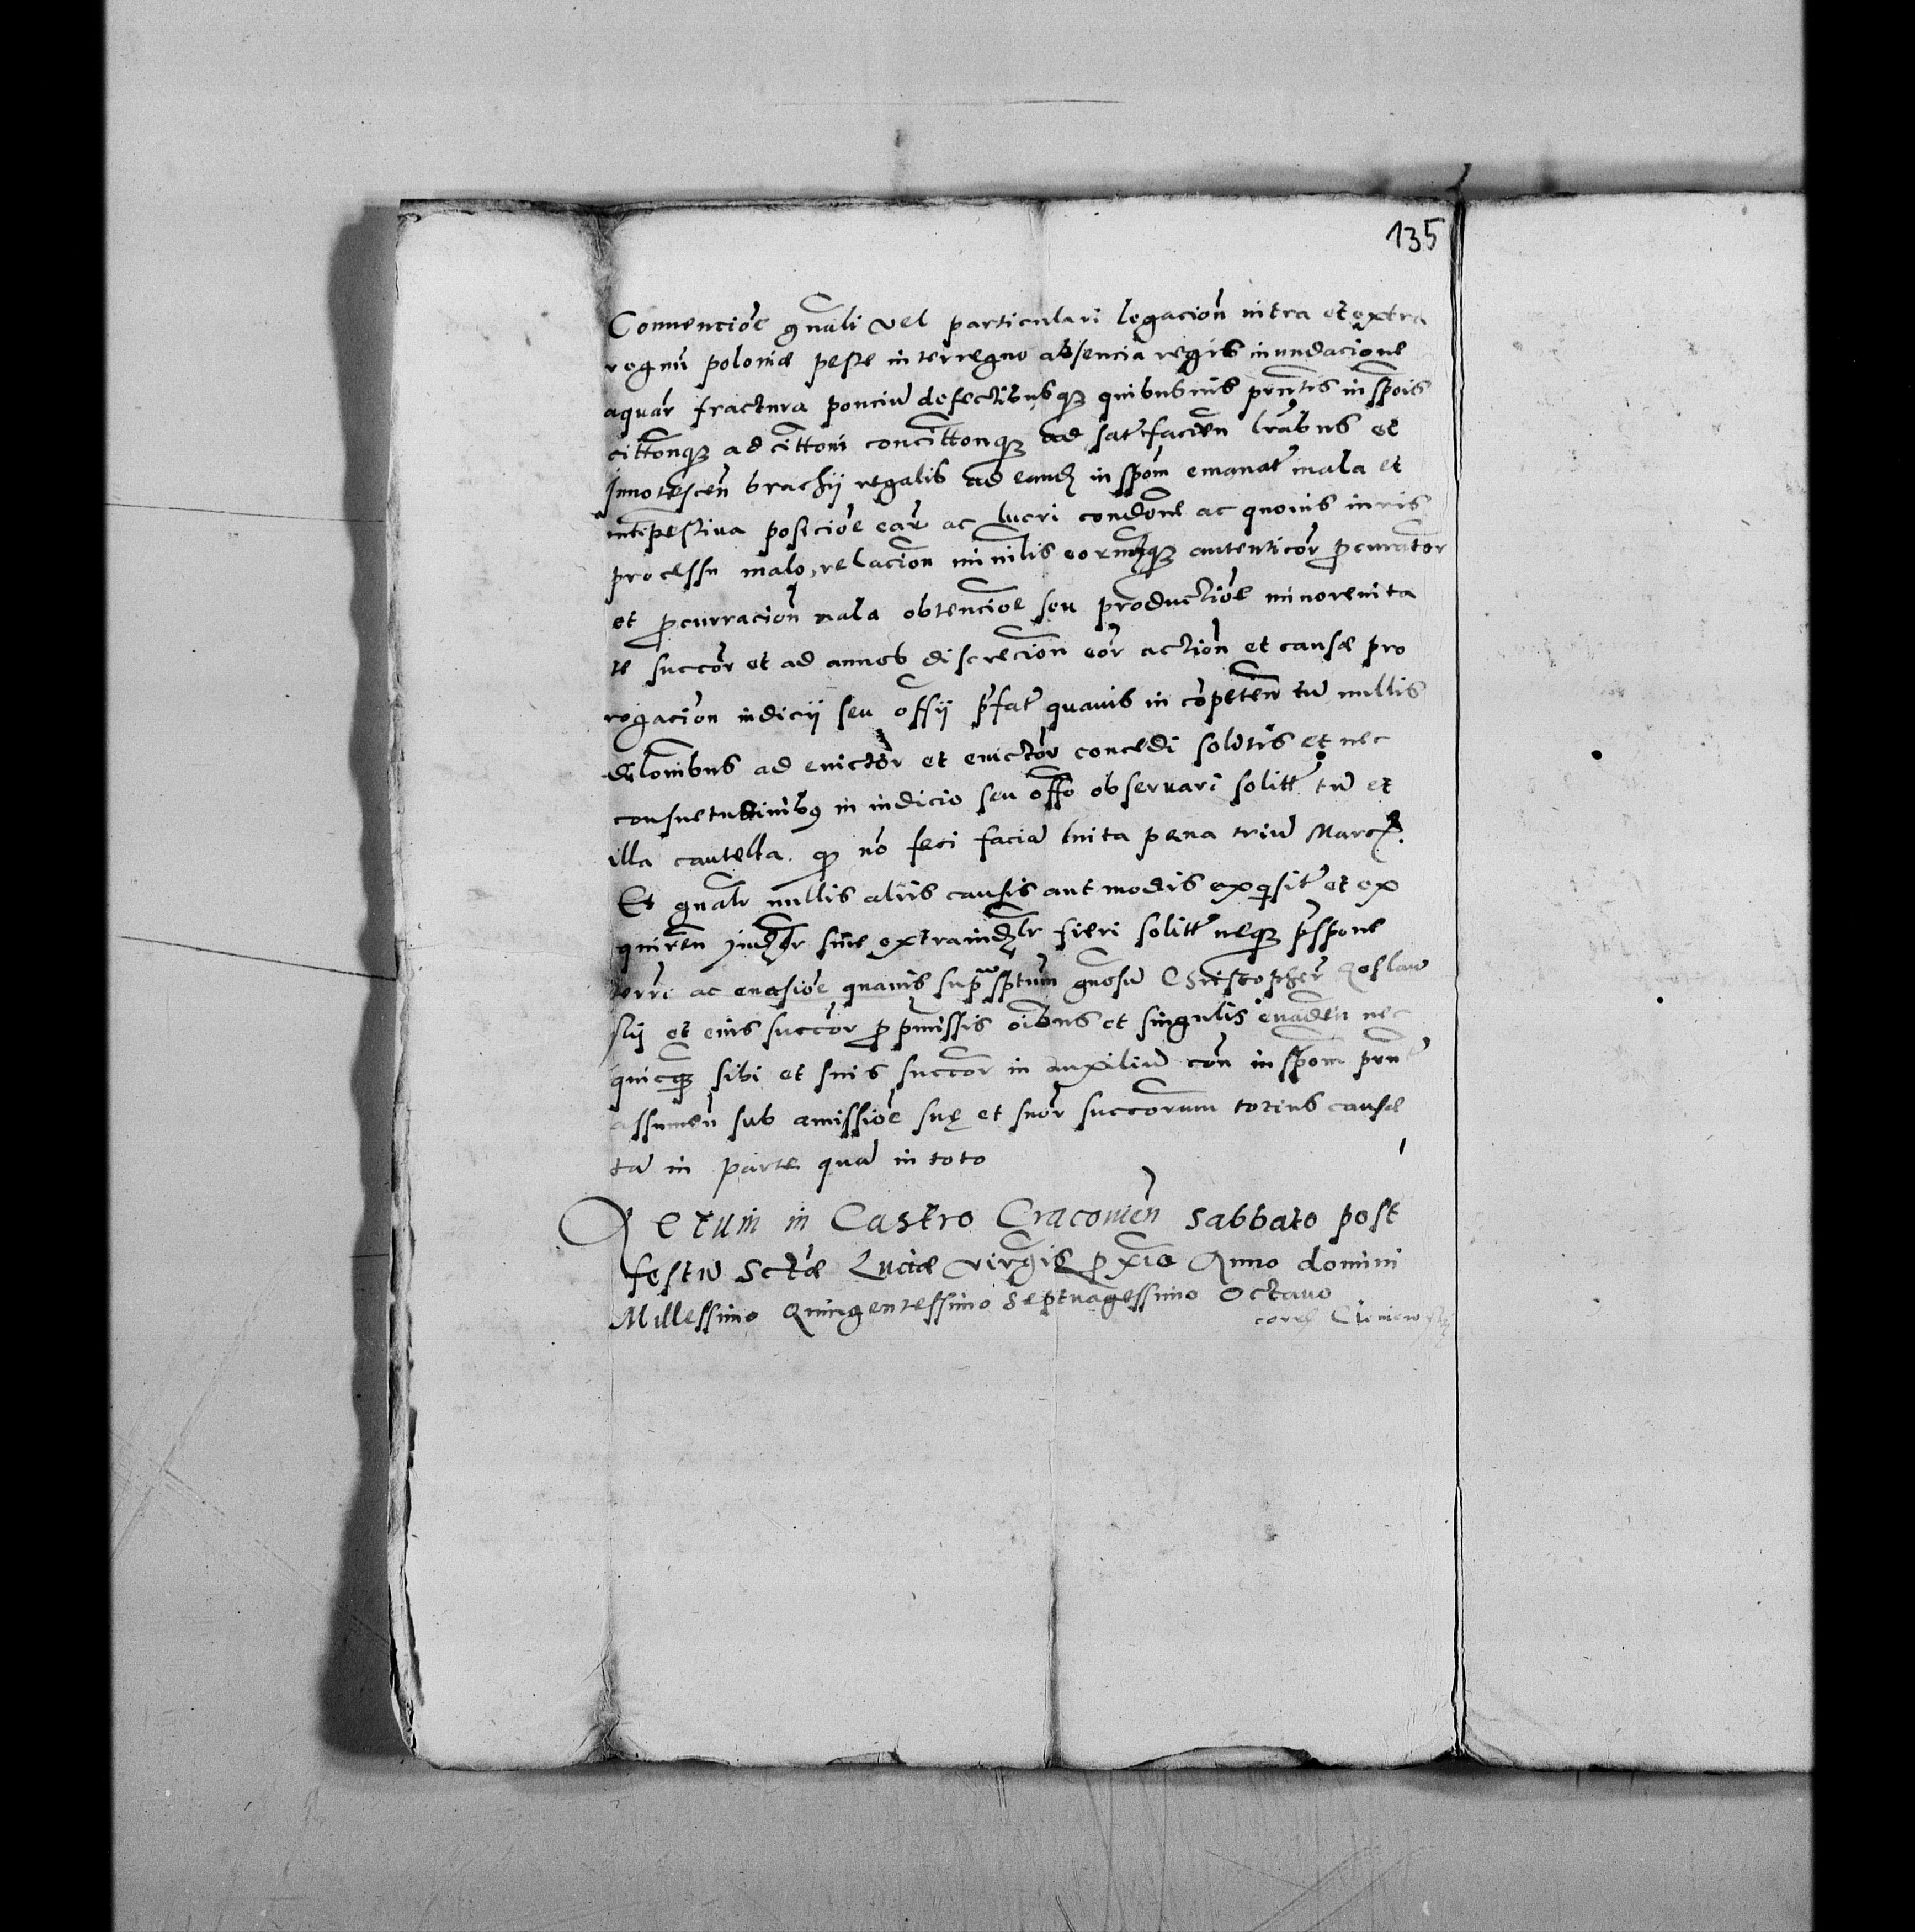 135
Convencioe gnali vel particulari legacion intra et extra
regnu poloniæ peste interregno absencia regis inundacione
aquar fractura ponciu defectibusq quibusuis prntis inspois
cittonq ad cittoni concittonq ad satisfacien lrabus et
Innotescen brachy regalis ad eand inspom emanat mala et
intepestiua posicioe ear ac lucri condone ac quouis iuris
processu malo, relacion minilis eorundq autenticor pcurator
et pcurracion mala obtencioe seu productioe minorenita
te succor et ad annos discrecion eor action et causæ pro
rogacion iudicij seu offij pfat quauis in copeten tu nullis
dilonibus ad euictor et euictor concedi solitis et nec
consuetudinibq in iudicio seu offo obseruari solitt tu et
illa cautella q no feci facia luita pena triu Marc.
Et gnalr nullis alijs causis aut modis exqsit et ex
quiren iudr siue extraiudlr fieri solitt neq pspone
terre ac euasioe quauis supsptum gnosu Christopher Koslaw
skj et eius succor p pmissis oibus et singulis euaden nec
quicq sibi et suis succor in auxiliu con inspom prnt
assumen sub amissioe suę et suor succorum totius causæ
ta in parte qua in toto
Actum in Castro Cracouien Sabbato post
festu Sctæ Luciæ virgis pxio Anno domini
Millessimo Quingentessimo Septuagessimo Octauo